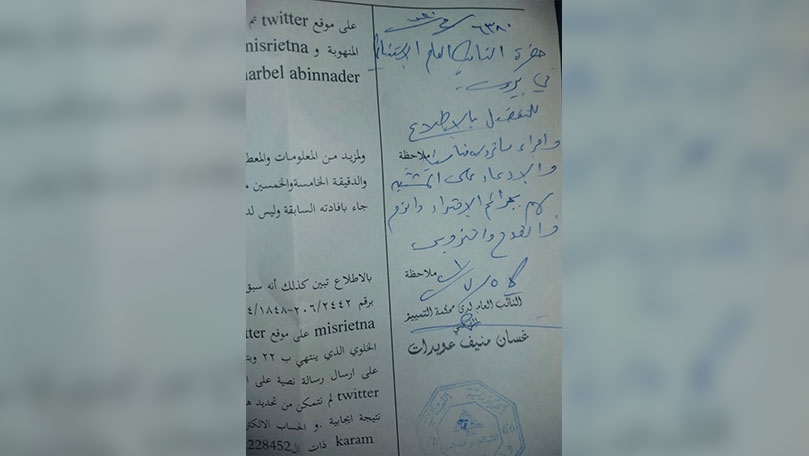 ٦٣٨٠
حضرة النائب العام الاستئنافي
في بيروت
للتفضل بالاطلاع
واجراء ما ترونه مناسباً
ملاحظة
والادعاء على المشتبه
بهم بجرائم الافتراء والذم
والقدح والتزوير
ملاحظة
النائب العام لدى محكمة التمييز
القاضي
غسان منيف عويدات
على موقع twitter
المنهوبة و misrietna
charbel abinnader
ولمزيد من المعلومات والمعط
والدقيقة الخامسة والخمسين
جاء بافادته السابقة وليس لد
بالاطلاع تبين كذلك أنه سبق
برقم ٢٠٦/٢٤٤٢-٤/١٨٤٨
misrietna على موقع tter
الخلوي الذي ينتهي ب ٢٢
على ارسال رسالة نصية على
twitter لم نتمكن من تحديد
نتيجة ايجابية .و الحساب الالكتر
karam ذات ال228452